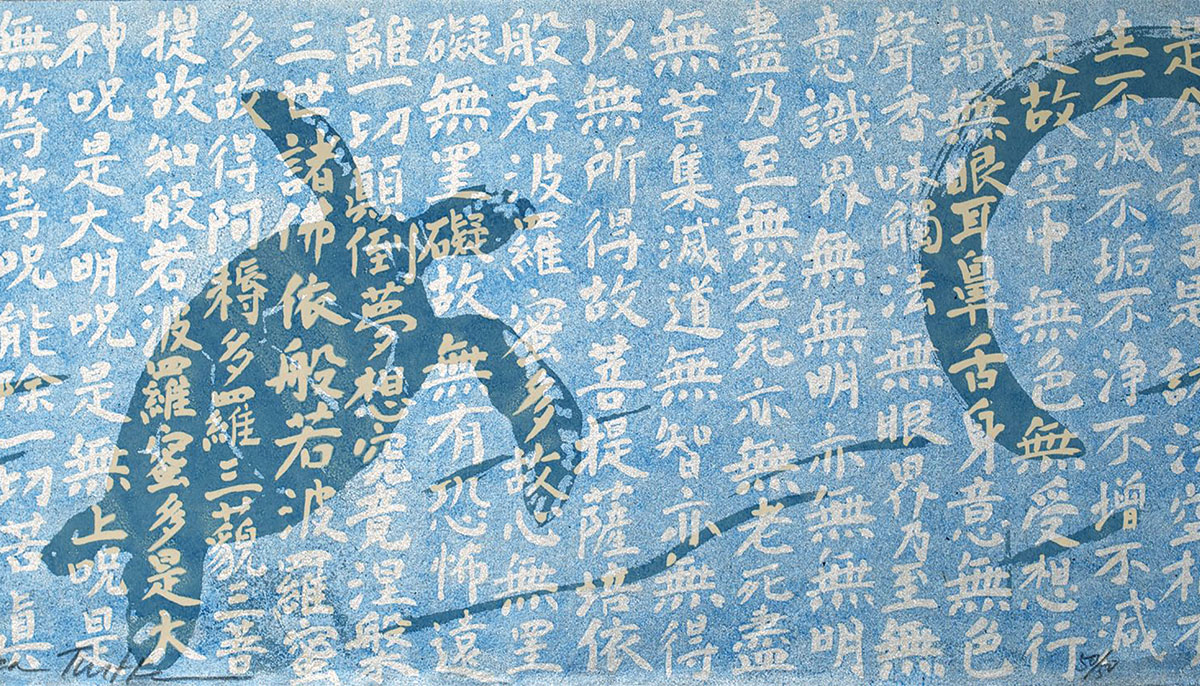 是舍利子是諸法空相不
生不滅不垢不淨不增不減
是故空中無色無受想行
識無眼耳鼻舌身意無色
聲香味觸法無眼界乃至無
意識界無無明亦無無明
盡乃至無老死亦無老死盡
無苦集滅道無智亦無得
以無所得故菩提薩埵依
般若波羅蜜多故心無罣
礙無罣礙故無有恐怖遠
離一切顛倒夢想究竟涅槃
三世諸佛依般若波羅蜜
多故得阿耨多羅三藐三菩
提故知般若波羅蜜多是大
神呪是大明呪是無上呪是
無等等呪能除一切苦眞
Turtle
50/50